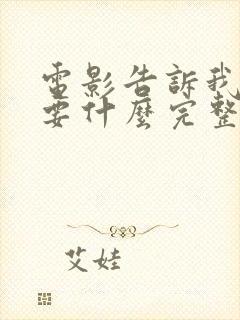 電影告訴我
要什麼完整
艾娃